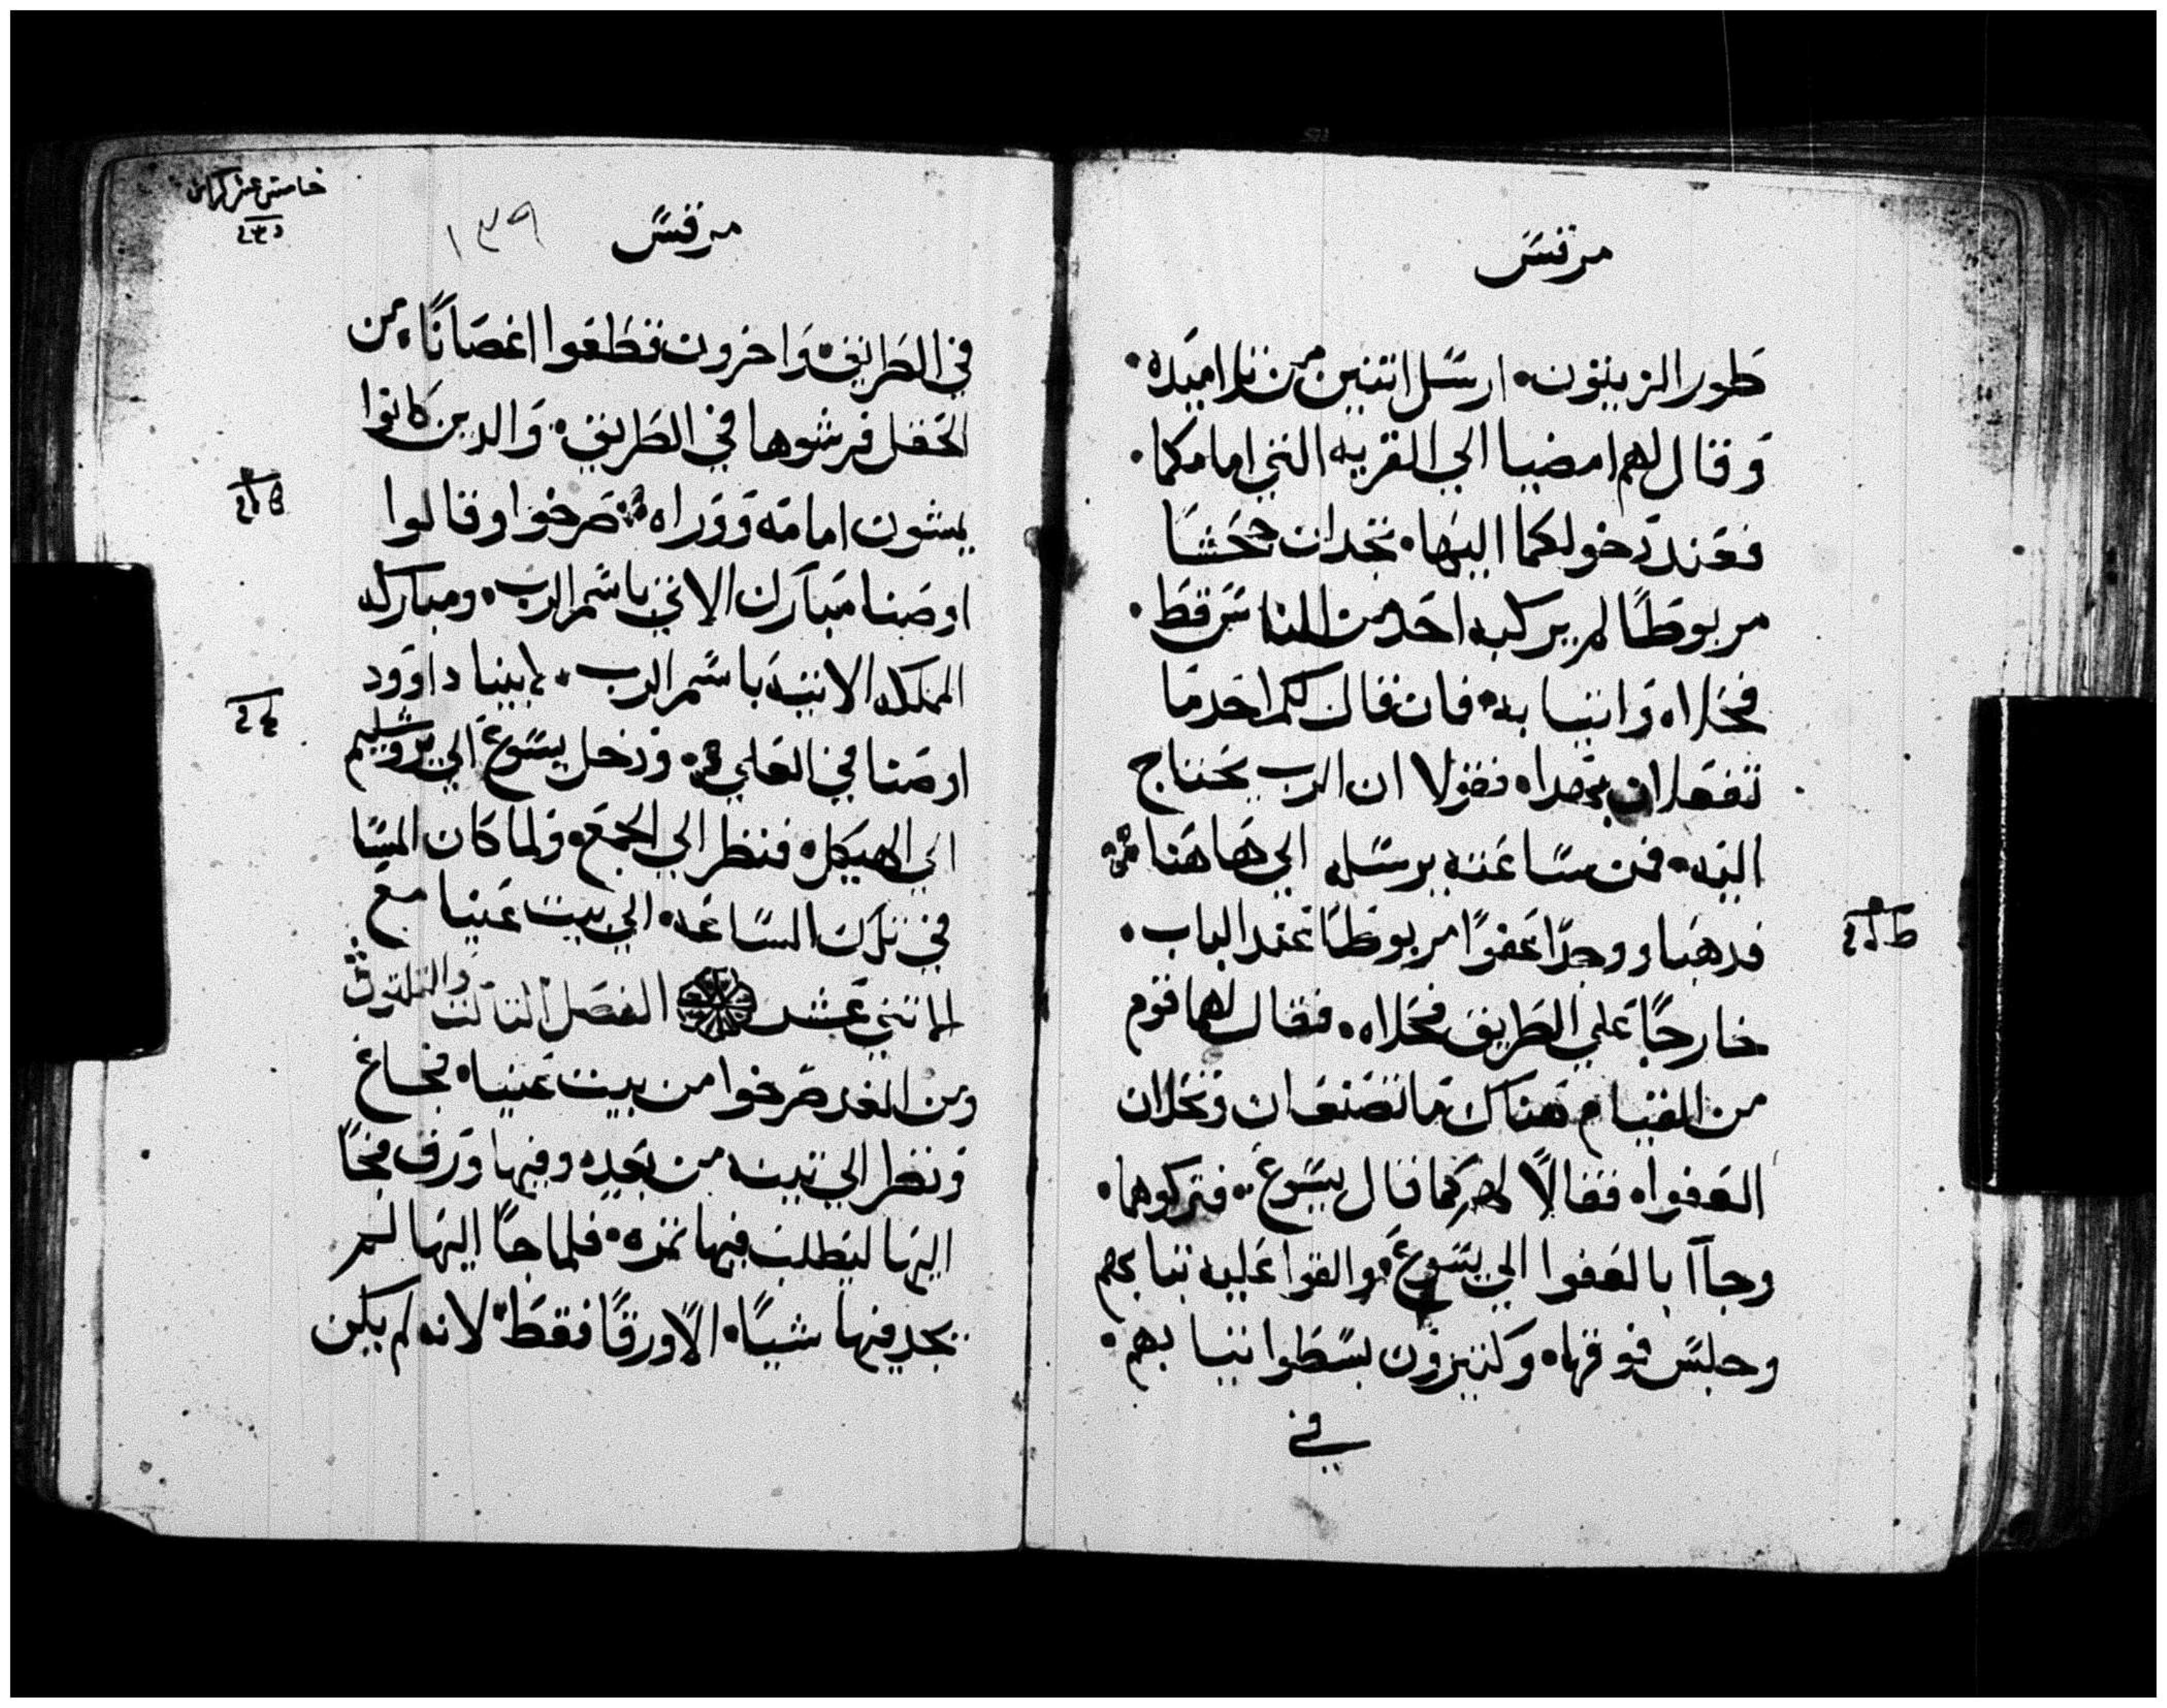 مرقس
طور الزيتون. ارسل اتنين من تلاميده.
وقال لهم امضيا الي القريه التي امامكما.
فعند دخولكما اليها. تجدان جحشا
مربوطًا لم يركبه احد من الناس قط.
فحلاه واتيا به. فان قال لكما احد ما
تفعلان بهدا. فقولا ان الرب يحتاج
اليه. فمن ساعته يرسله الي هاهنا
فدهبا ووجدا عفوًا مربوطًا عند الباب.
خارجًا علي الطريق فحلاه. فقال لهما قوم
من القيام هناك ما تصنعان وتحلان
العفوا. فقالا لهم كما قال يسوع. فتركوهما.
وجاآ بالعفوا الي يسوع. والقوا عليه تيابهم
وجلس فوقها. وكتيرون بسطوا تيابهم.
في
خامس عشر كراس
مرقس
١٣٩
في الطريق. واخرون قطعوا اغصانًا من
الحقل فرشوها في الطريق. والدين كانوا
يمشون امامه ووراه. صرخوا وقالوا
اوصنا مبارك الاتي باسم الرب. ومباركه
المملكه الاتيه باسم الرب. لابينا داوود
اوصنا في العلي. ودخل يسوع الي يروشليم
الي الهيكل. فنظر الي الجمع. ولما كان المسا
في تلك الساعه. الي بيت عنيا مع
الاتني عشر الفصل التالت والتلتون
ومن الغد خرجوا من بيت عنيا. فجاع
ونظر الي تينه من بعيد. وفيها ورق فجا
اليها ليطلب فيها تمره. فلما جا اليها لم
يجد فيها شيًا. الا ورقًا فقط. لانه لم يكن